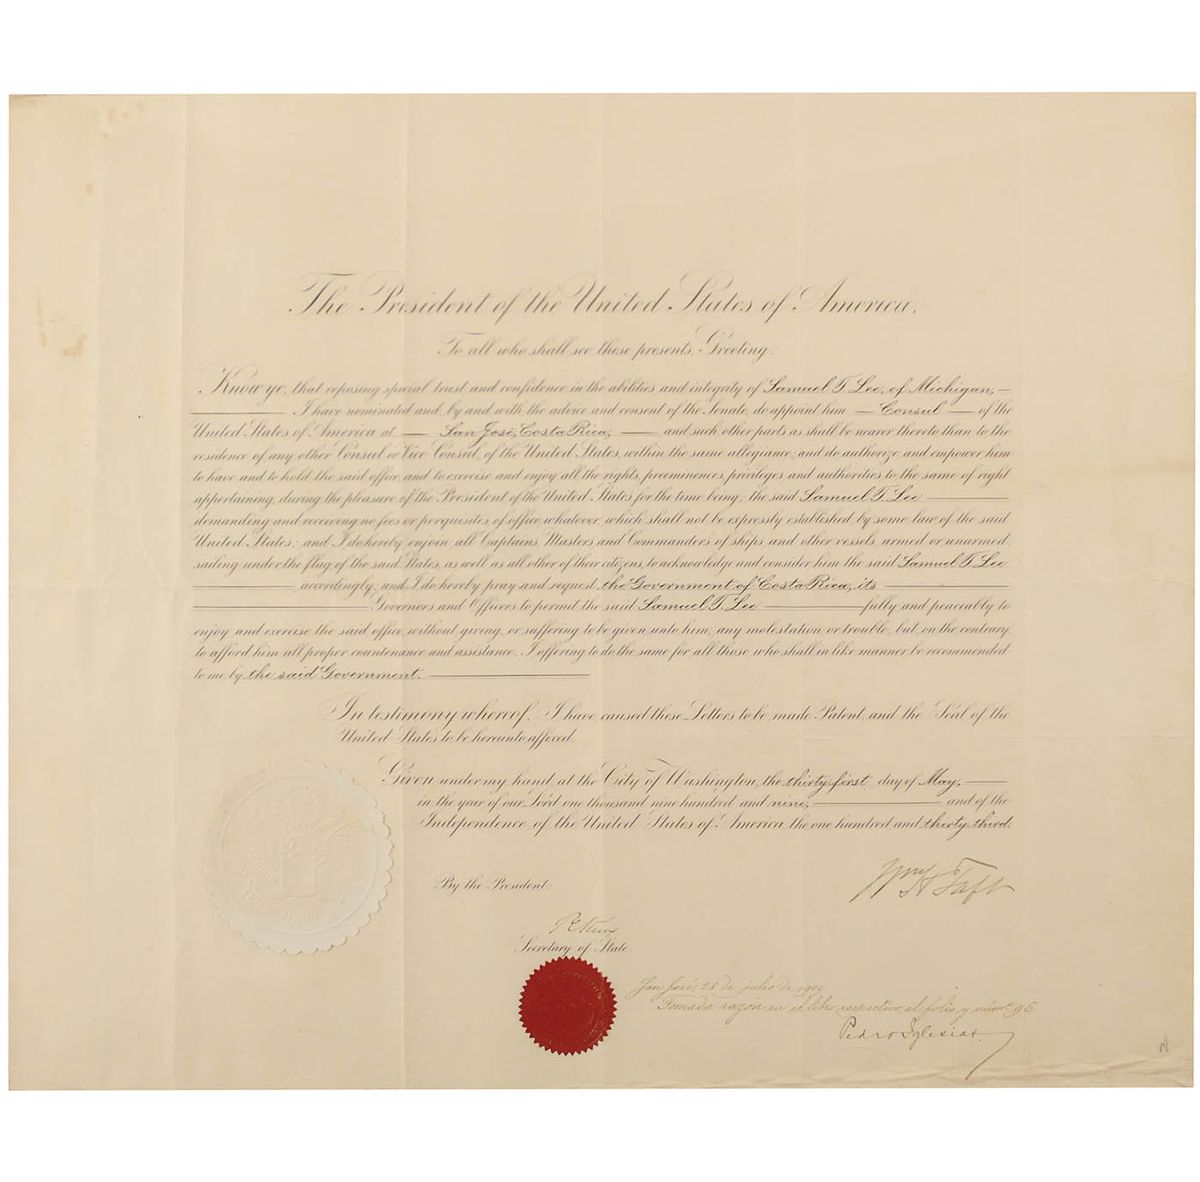 The President of the United States of America.
To all who shall see these presents, Greeting:
Know ye, that reposing special trust and confidence in the abilities and integrity of Samuel T. Lee, of Michigan,
I have nominated and, by and with the advice and consent of the Senate, do appoint him Consul of the
United States of America at San José, Costa Rica, and such other parts as shall be nearer thereto than to the
residence of any other Consul or Vice Consul of the United States, within the same allegiance; and do authorize and empower him
to have and to hold the said office, and to exercise and enjoy all the rights, preeminences, privileges and authorities to the same of right
appertaining, during the pleasure of the President of the United States for the time being; the said Samuel T. Lee
demanding and receiving no fees or perquisites of office whatever, which shall not be expressly established by some law of the said
United States; and I do hereby enjoin all Captains, Masters and Commanders of ships and other vessels, armed or unarmed,
sailing under the flag of the said States, as well as all other of their citizens, to acknowledge and consider him the said Samuel T. Lee
accordingly; and I do hereby pray and request the Government of Costa Rica, its
Governors and Officers to permit the said Samuel T. Lee fully and peaceably to
enjoy and exercise the said office, without giving, or suffering to be given unto him, any molestation or trouble, but, on the contrary,
to afford him all proper countenance and assistance, I offering to do the same for all those, who shall in like manner be recommended
to me by the said Government.
In testimony whereof, I have caused these Letters to be made Patent, and the Seal of the
United States to be hereunto affixed.
Given under my hand, at the City of Washington, the thirty-first day of May,
in the year of our Lord one thousand nine hundred and nine, and of the
Independence of the United States of America the one hundred and thirty-third.
Wm H Taft
By the President:
P C Knox
Secretary of State
San José, 28 de julio de 1909
Tomada razón en el libro respectivo, al folio y núm° 96
Pedro Iglesias